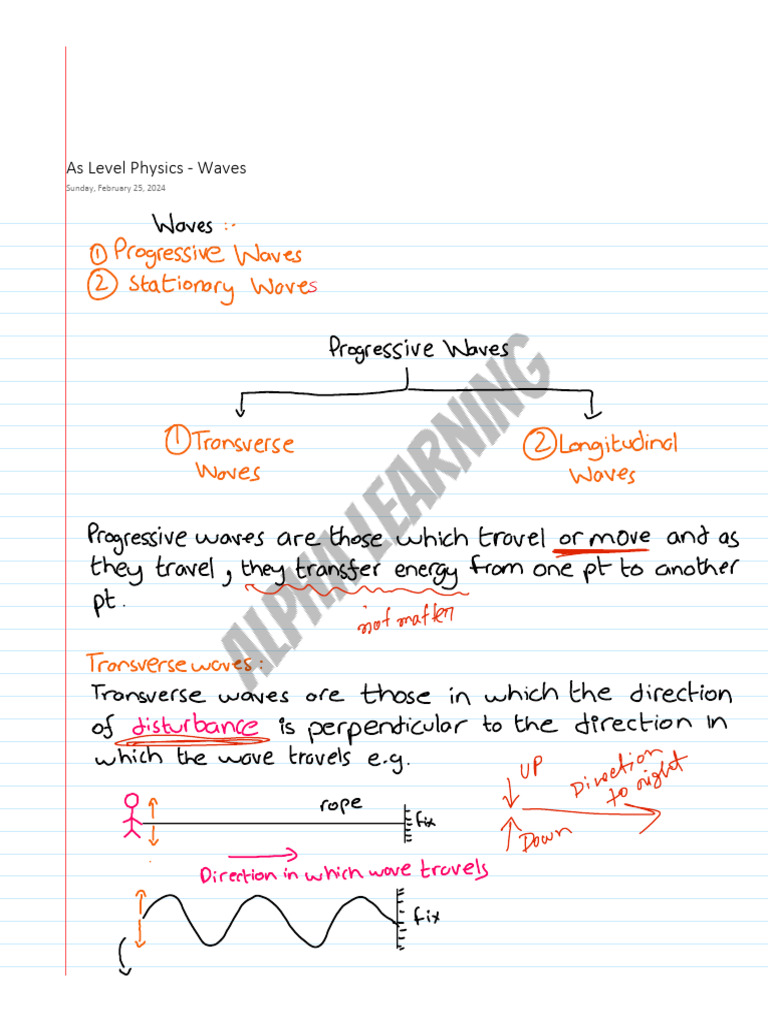 As Level Physics - Waves
Sunday, February 25, 2024
Waves :-
① Progressive Waves
② Stationary Waves
Progressive Waves
① Transverse
Waves
② Longitudinal
Waves
Progressive waves are those which travel or move and as
they travel, they transfer energy from one pt to another
pt.
not matter
Transverse waves:
Transverse waves are those in which the direction
of disturbance is perpendicular to the direction in
which the wave travels e.g.
UP
Direction
to right
Down
rope
fix
Direction in which wave travels
fix
ALPHA LEARNING